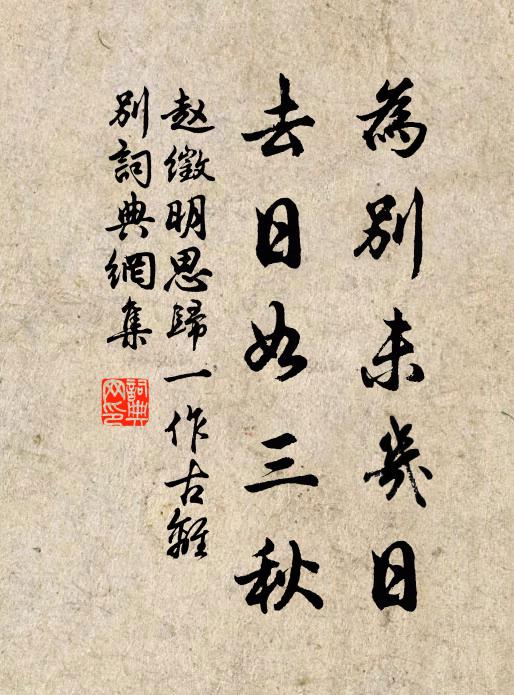 為別未幾日
去日如三秋
赵徵明思歸一作古離
別詞典網集
詞典網印